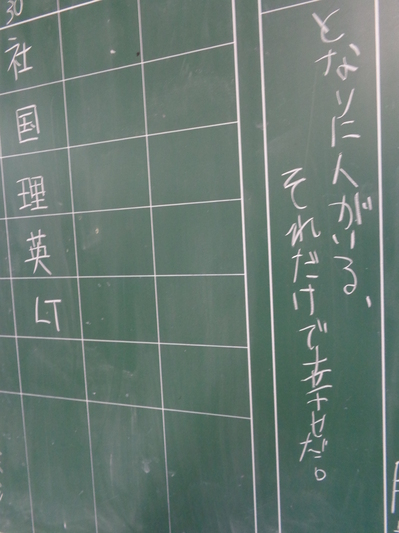 となりに人がいる、
それだけで幸せだ。
30
社
国
理
英
LT